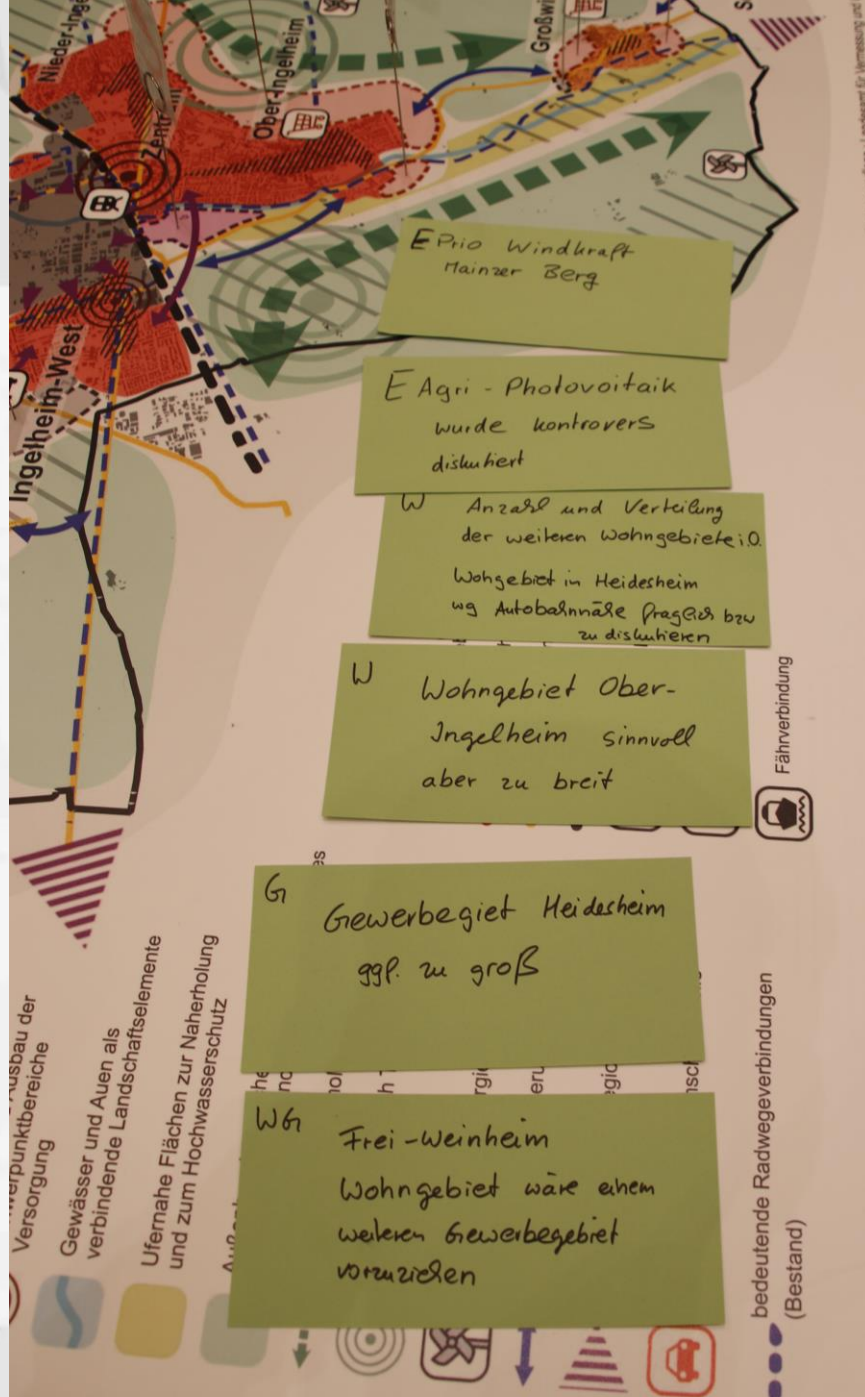 Nieder-Inge
Ober-Ingelheim
Großwi
Zentrum
Ingelheim-West
E Prio Windkraft
Mainzer Berg
E Agri - Photovoitaik
wurde kontrovers
diskutiert
W Anzahl und Verteilung
der weiteren Wohngebiete i.O.
Wohgebiet in Heidesheim
wg Autobahnnähe fraglich bzw
zu diskutieren
W Wohngebiet Ober-
Ingelheim sinnvoll
aber zu breit
G Gewerbegiet Heidesheim
ggf. zu groß
WG Frei-Weinheim
Wohngebiet wäre einem
weiteren Gewerbegebiet
vorzuziehen
Fährverbindung
Ausbau der
Versorgung
Gewässer und Auen als
verbindende Landschaftselemente
Ufernahe Flächen zur Naherholung
und zum Hochwasserschutz
bedeutende Radwegeverbindungen
(Bestand)